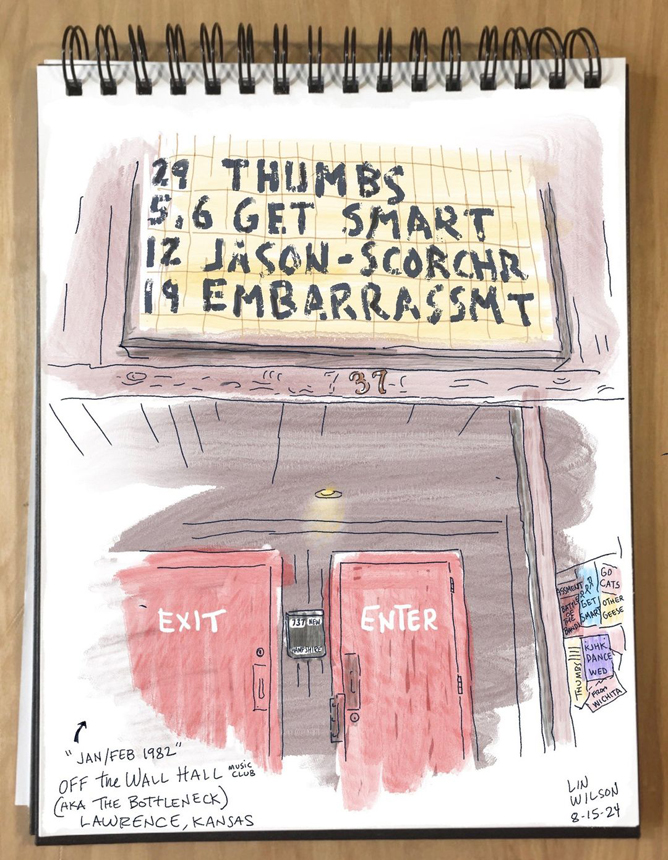 29 THUMBS
5,6 GET SMART
12 JASON-SCORCHR
19 EMBARRASSMT
37
EXIT
ENTER
737 NEW
HAMPSHIRE
GO
CATS
BATTLE
OF
THE
BANDS
GET
SMART
OTHER
GEESE
THUMBS
KJHK
DANCE
WED
FROM
WICHITA
"JAN/FEB 1982"
OFF the WALL HALL MUSIC CLUB
(AKA THE BOTTLENECK)
LAWRENCE, KANSAS
LIN
WILSON
8-15-24